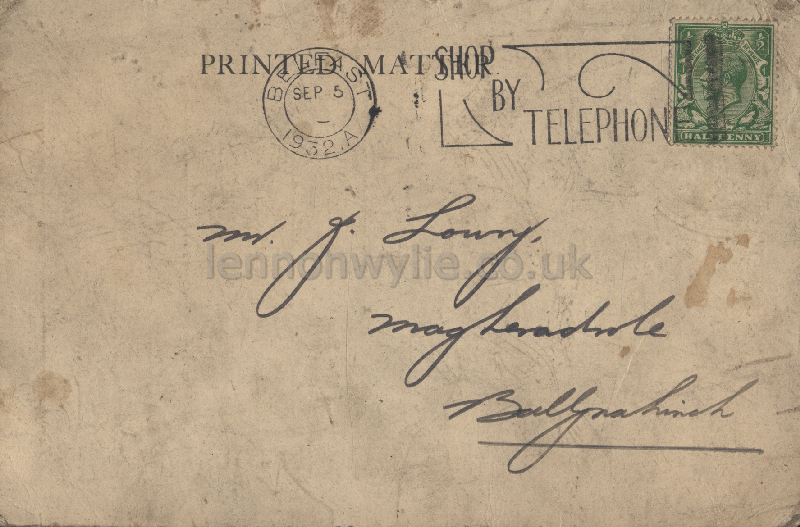 PRINTED MATTER
BELFAST
SEP 5
1932. A
SHOP
BY
TELEPHON
HALFPENNY
Mr. J. Lowry,
lennonwylie.co.uk
Magheradrole
Ballynahinch